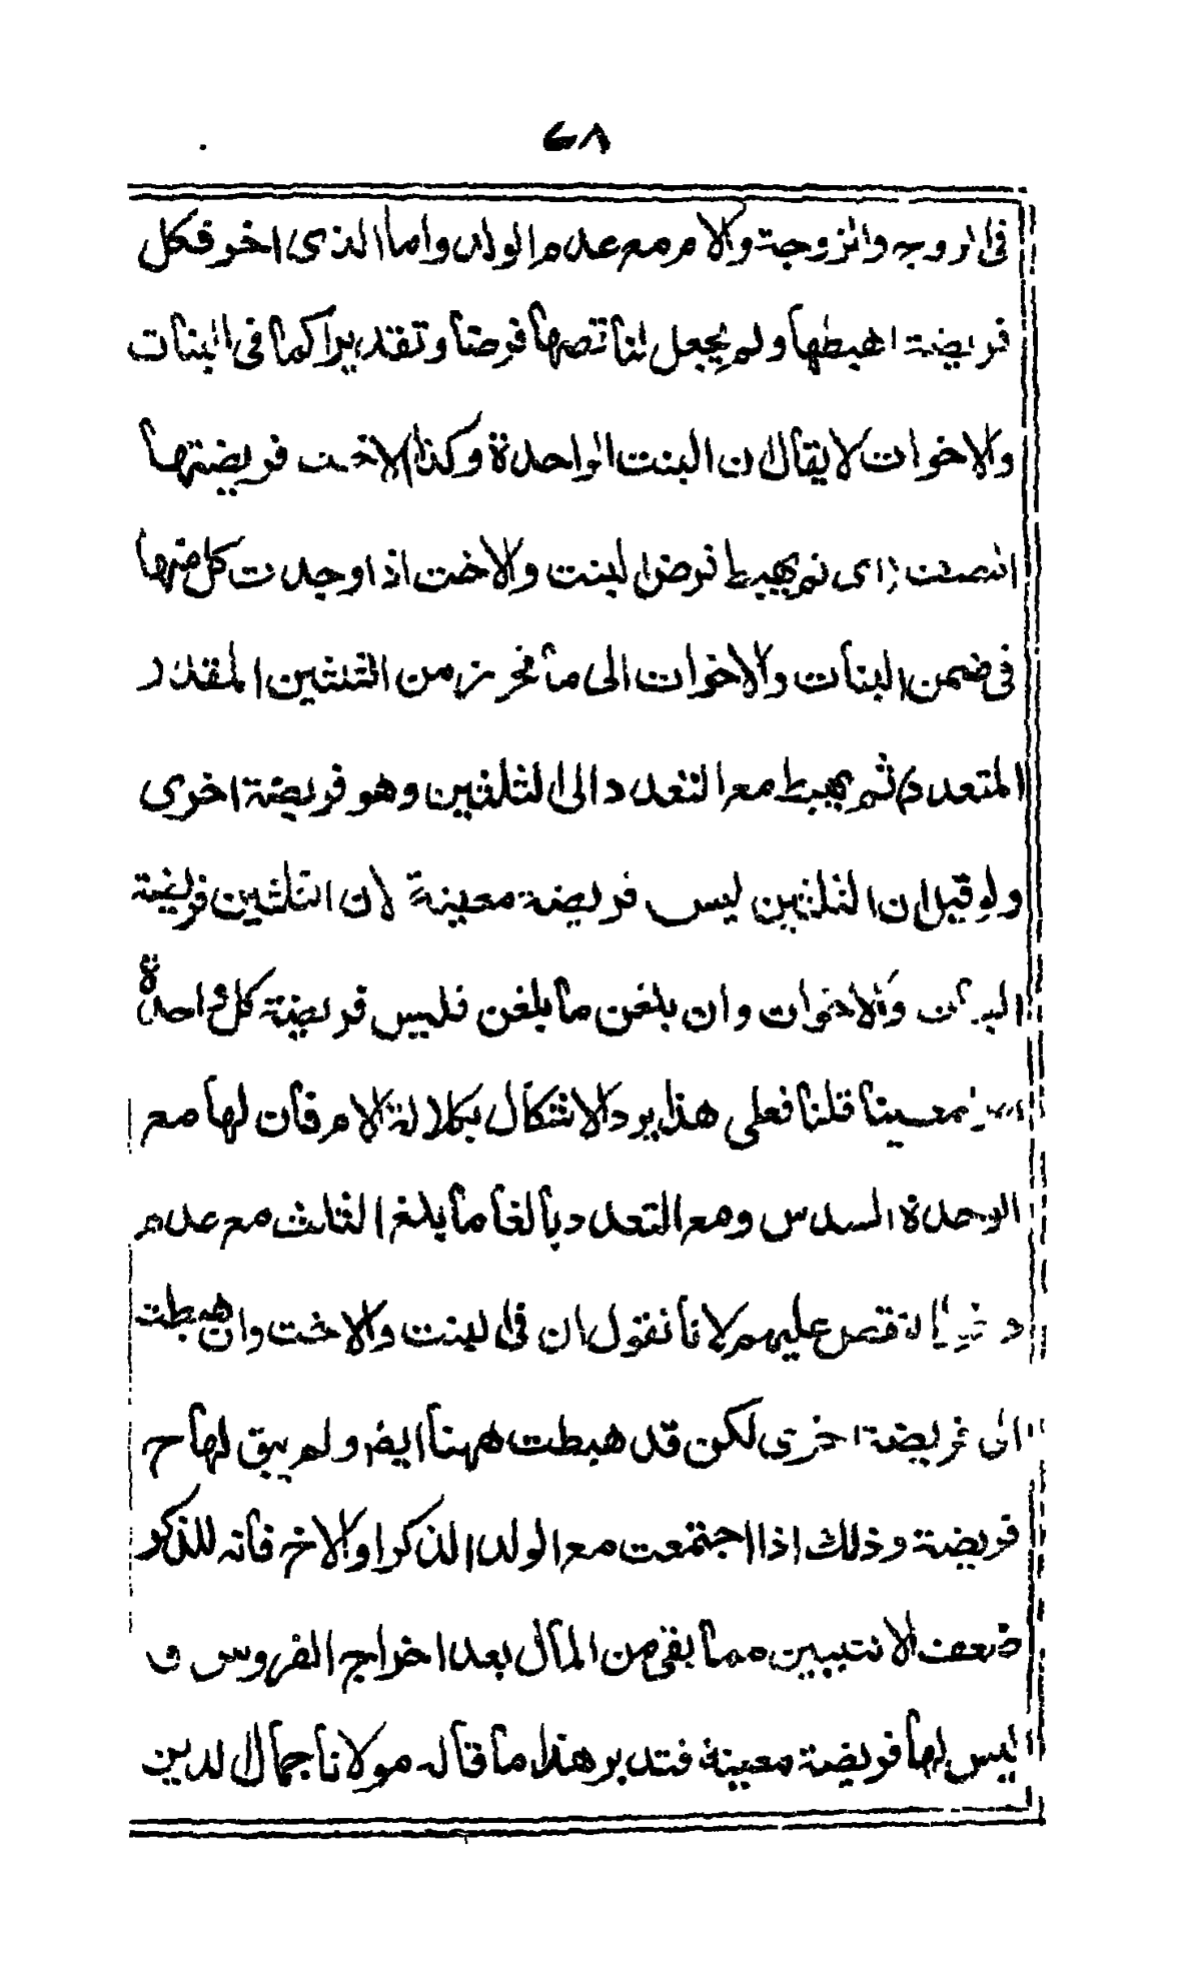 ٦٨
فى الزوج والزوجة والام مع عدم الولد واما الذى اخر فكل
فريضة اهبطها ولم يجعل لنا نقصها فرضا وتقديرا كما فى البنات
والاخوات لا يقال ان البنت الواحدة وكذا الاخت فريضتها
النصف اى ثم يهبط فرض البنت والاخت اذا وجدت كل منها
فى ضمن البنات والاخوات الى ما من الثلثين المقدر
المتعدد) ثم يهبط مع التعدد الى الثلثين وهو فريضة اخرى
ولو قيل ان الثلثين ليس فريضة معينة لان الثلثين فريضة
البنات والاخوات وان بلغن ما بلغن فليس فريضة كل واحدة
معينا قلنا فعلى هذا يرد الاشكال بكلالة الام فان لها مع
الوحدة السدس ومع التعدد بالغا ما بلغ الثلث مع عدم
النقص عليهم لانا نقول ان فى البنت والاخت وان هبطت
الى فريضة اخرى لكن قد هبطت ههنا ايضا ولم يبق لها ح
فريضة وذلك اذا اجتمعت مع الولد الذكر او الاخ فانه للذكر
ضعف الانثيين مما بقى من المال بعد اخراج الفروض و
ليس لها فريضة معينة فتدبر هذا ما قاله مولانا جمال الدين